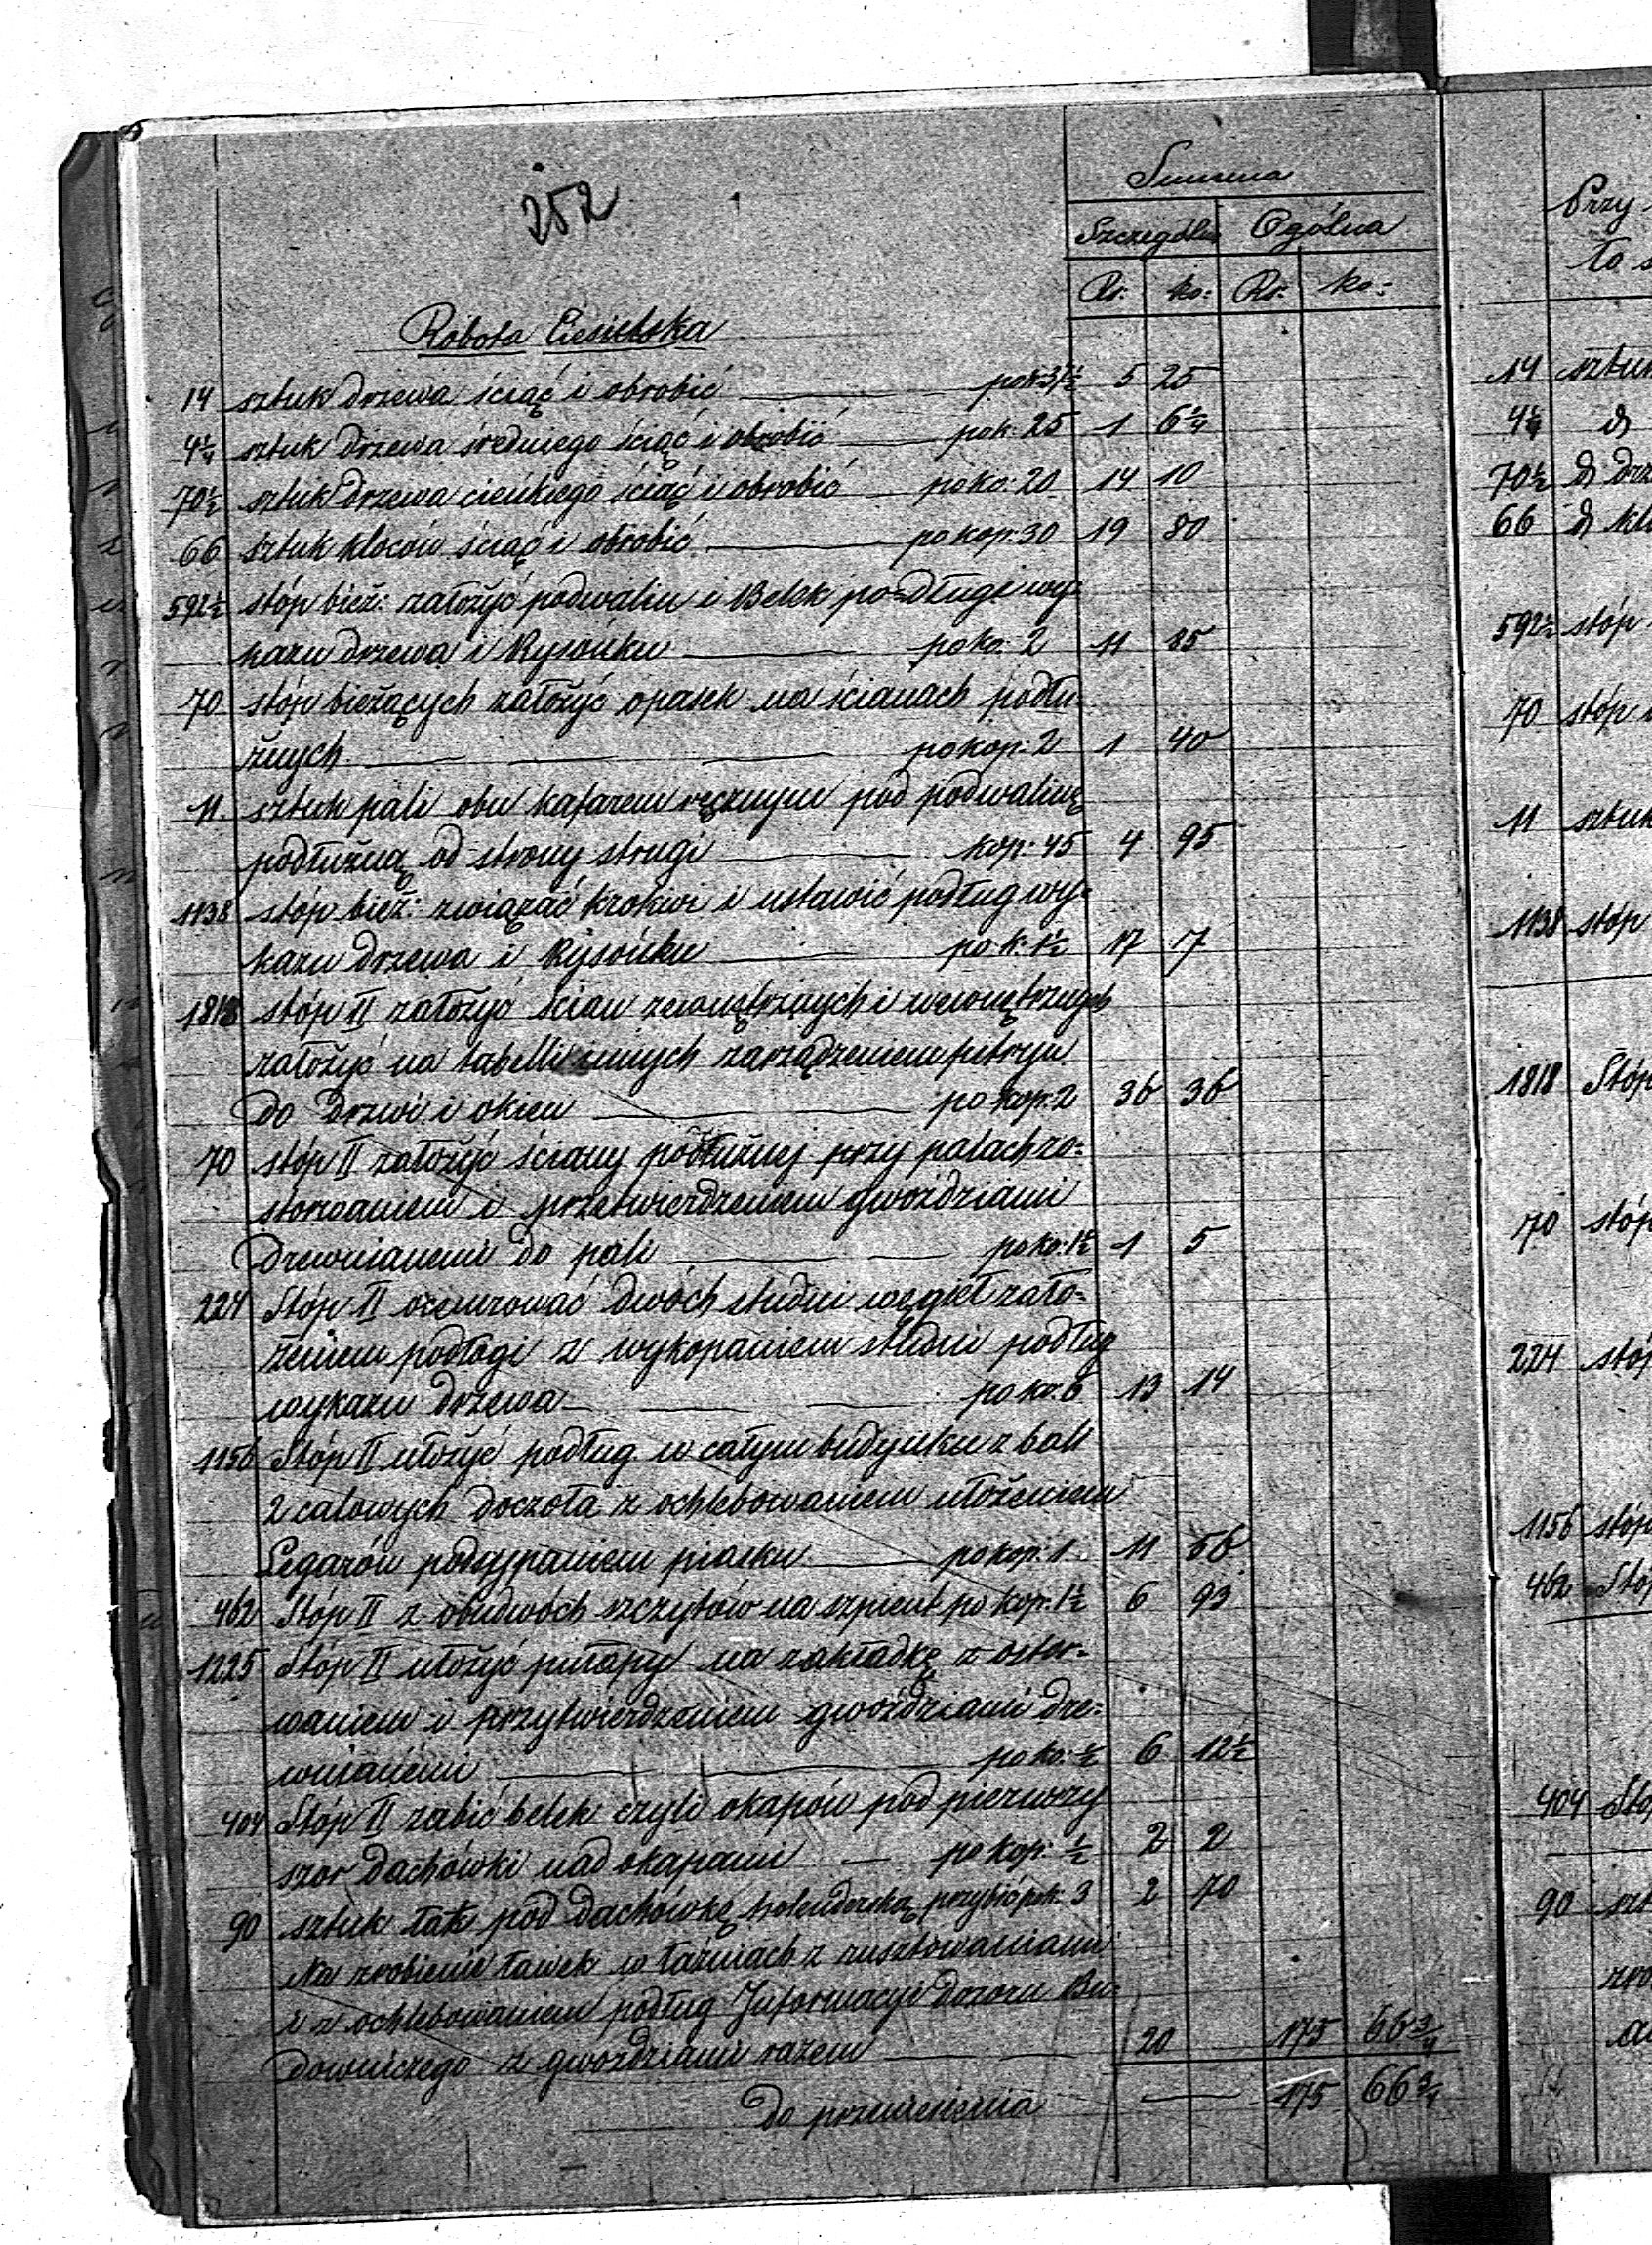 252
Summa
Szczególna Ogólna
Rs. ko: Rs. ko:
Robota Ciesielska
14 sztuk drzewa ściąć i obrobić — po k: 37½ 5 25
4¼ sztuk drzewa średniego ściąć i obrobić — po k: 25 1 6¼
70½ sztuk drzewa cieńkiego ściąć i obrobić po ko: 20 14 10
66 sztuk kloców ściąć i obrobić — po kop: 30 19 80
592½ stóp bież: założyć podwalin i Belek podług wy-
kazu drzewa i Rysónku — po ko: 2 11 85
70 stóp bieżących założyć opasek na ścianach podłu-
żnych — po kop: 2 1 40
11. sztuk pali kafarem ręcznym pod podwalinę
podłużną od strony strugi — kop: 45 4 95
1138 stóp bież: związać krokwi i ustawić podług wy-
kazu drzewa i Rysónku — po k: 1½ 17 7
1818 stóp II założyć ścian zewnętrznych i wewnętrznych
założyć na zarządzeniem futryn
do Drzwi i okien — po kop: 2 36 36
70 stóp II założyć ściany podłużnej przy palach zo-
storowaniem i przetwierdzeniem gwoździami
drewnianemi do pali — po ko: 1½ 1 5
224 Stóp II ocemrować dwóch studni węgieł zało-
żeniem podłogi z wykopaniem studni podług
wykazu drzewa — po ko: 6 13 14
1156 Stóp II ułożyć podług w całym budynku z bali
2 calowych doczoła z ochlebowaniem ułożeniem
Legarów podsypaniem piasku — po kop: 1 11 56
462 Stóp II z obudwóch szczytów na szpient po kop: 1½ 6 93
1225 Stóp II ułożyć pułapy na zakładkę z ostor-
waniem i przytwierdzeniem gwoździami dre-
wnianémi — po ko: ½ 6 12½
404 Stóp II zabić belek czyli okapów pod pierwszy
szor dachówki nad okapami — po kop: ½ 2 2
90 sztuk łat pod dachówkę holenderską przybić po k: 3 2 70
Na zrobienie ławek w łaźniach z rusztowaniami
i z ochlebowaniem podług Informacyi Dozoru Bu-
downiczego z gwoździami razem — 20 175 66¾
do przeniesienia — 175 66¾
Przy
to
14 sztuk
4¼
70½
66
592½ stóp
70 stóp
11 sztuk
1138 stóp
1818 Stóp
70 stóp
224 stóp
1156 stóp
462 Stóp
404 Stóp
90